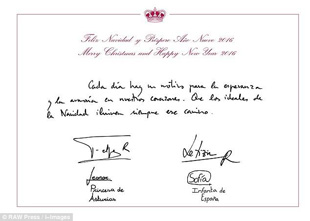 Feliz Navidad y Próspero Año Nuevo 2016
Merry Christmas and Happy New Year 2016
Cada día hay un motivo para la esperanza
y la armonía en nuestros corazones. Que los ideales de
la Navidad iluminen siempre ese camino.
Felipe R Letizia R
Leonor Sofía
Princesa de Infanta de
Asturias España
© RAW Press / i-Images